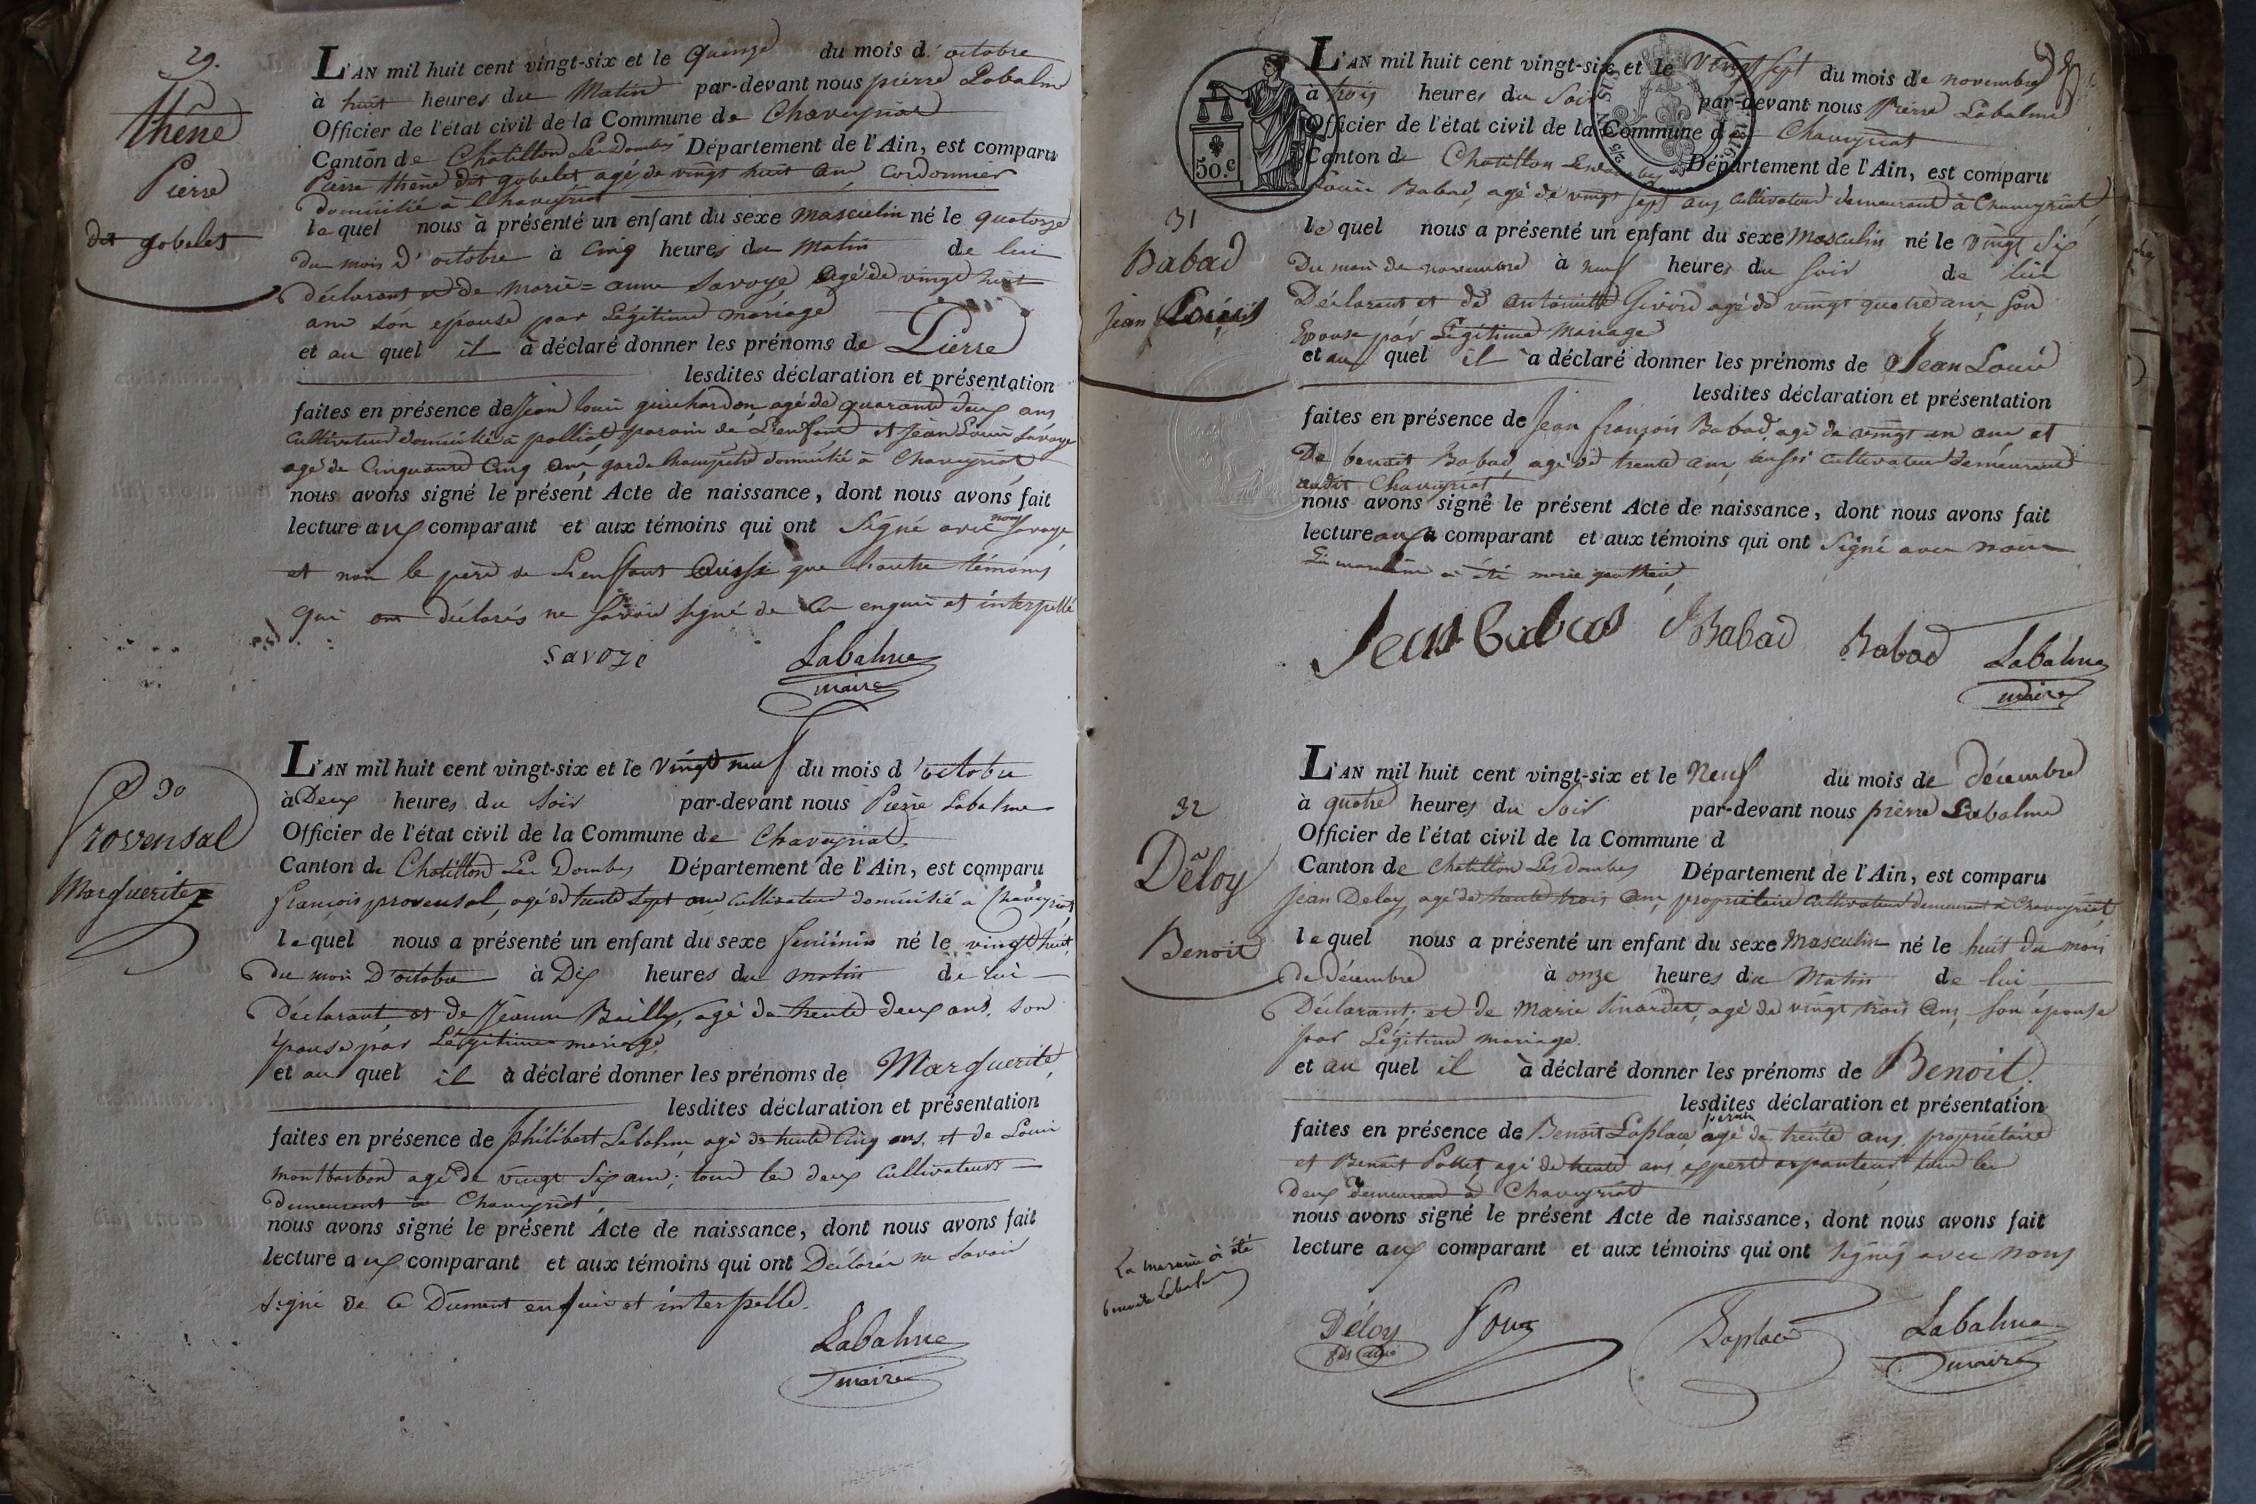 29.
thêne
Pierre
dit gobelet
L'AN mil huit cent vingt-six et le quinze du mois d'octobre
à huit heures du Matin par-devant nous pierre Labalme
Officier de l'état civil de la Commune de Chaveyriat
Canton de Chatillon Les Dombes Département de l'Ain, est comparu
Pierre thêne dit gobelet agé de vingt huit ans Cordonnier
domicilié à Chaveyriat
lequel nous à présenté un enfant du sexe masculin né le quatorze
du mois d'octobre à Cinq heures du Matin de lui
déclarant et de marie=anne Savoye agé de vingt huit
ans son epouse par Légitime mariage
et au quel il à déclaré donner les prénoms de Pierre
lesdites déclaration et présentation
faites en présence de Jean louis guichardon agé de quarante deux ans
cultivateur domicilié à polliat parain de L'enfant et Jean Louis Savoye
agé de Cinquante Cinq ans garde Champêtre domicilié à Chaveyriat
nous avons signé le présent Acte de naissance, dont nous avons fait
lecture aux comparant et aux témoins qui ont Signé avec nous Savoye
et non le père de L'enffant Aussi que L'autre témoins
qui ont déclarés ne Savoir signé de Ce enquis et interpellé
savoye
Labalme
maire
30
Provensal
Marguerite
L'AN mil huit cent vingt-six et le Vingt neuf du mois d'octobre
à Deux heures du Soir par-devant nous Pierre Labalme
Officier de l'état civil de la Commune de Chaveyriat
Canton de Chatillon Les Dombes Département de l'Ain, est comparu
françois provensal, agé de trente Sept ans, cultivateur domicilié a Chaveyriat
lequel nous a présenté un enfant du sexe féminin né le vingt huit
du mois D'octobre à Dix heures du matin de lui
Déclarant, et de Jeanne Bailly, agé de trente deux ans, son
épouse par Légitime mariage
et au quel il à déclaré donner les prénoms de Marguerite,
lesdites déclaration et présentation
faites en présence de philibert Labalme agé de trente Cinq ans, et de Louis
montbarbon agé de vingt Six ans; tous les deux cultivateurs
demeurant à Chaveyriat,
nous avons signé le présent Acte de naissance, dont nous avons fait
lecture aux comparant et aux témoins qui ont Déclarés ne Savoir
signé de Ce Dument enquis et interpellé.
Labalme
maire
50.c
31
Babad
jean Louis
L'AN mil huit cent vingt-six et le Vingt Sept du mois de novembre
à trois heures du Soir par-devant nous Pierre Labalme
Officier de l'état civil de la Commune d Chaveyriat
Canton de Chatillon Les Dombes Département de l'Ain, est comparu
Louis Babad, agé de vingt Sept ans Cultivateur demeurant à Chaveyriat,
lequel nous a présenté un enfant du sexe Masculin né le vingt Six
Du mois de novembre à neuf heures du Soir de lui
Déclarant, et de antoinette Givord agé de vingt quatre ans, Son
Epouse par Légitime Mariage
et au quel il a déclaré donner les prénoms de Jean Louis
lesdites déclaration et présentation
faites en présence de Jean françois Babad, agé de vingt un ans et
De benoit Babad, agé de trente ans, aussi cultivateur demeurant
audit Chaveyriat
nous avons signé le présent Acte de naissance, dont nous avons fait
lecture aux comparant et aux témoins qui ont Signé avec nous
La maraine a été marie
Jean Babad Babad Babad Labalme
maire
32
Déloy
Benoit
L'AN mil huit cent vingt-six et le Neuf du mois de décembre
à quatre heures du Soir par-devant nous pierre Labalme
Officier de l'état civil de la Commune d
Canton de Chatillon Les Dombes Département de l'Ain, est comparu
Jean Deloy, agé de trente trois ans, propriétaire cultivateur demeurant à Chaveyriat,
lequel nous a présenté un enfant du sexe Masculin né le huit du mois
de décembre à onze heures du Matin de lui
Déclarant, et de Marie Sinardet, agé de vingt trois ans, son épouse
par Légitime mariage.
et au quel il à déclaré donner les prénoms de Benoit.
lesdites déclaration et présentation
faites en présence de Benoit Laplace agé de trente ans, propriétaire
et Benoit Pollet, agé de trente ans expert arpanteur, tous les
Deux demeurant à Chaveyriat
nous avons signé le présent Acte de naissance, dont nous avons fait
lecture aux comparant et aux témoins qui ont signés avec nous
La maraine à été
benoite Labalme
Déloy Laplace Labalme
maire